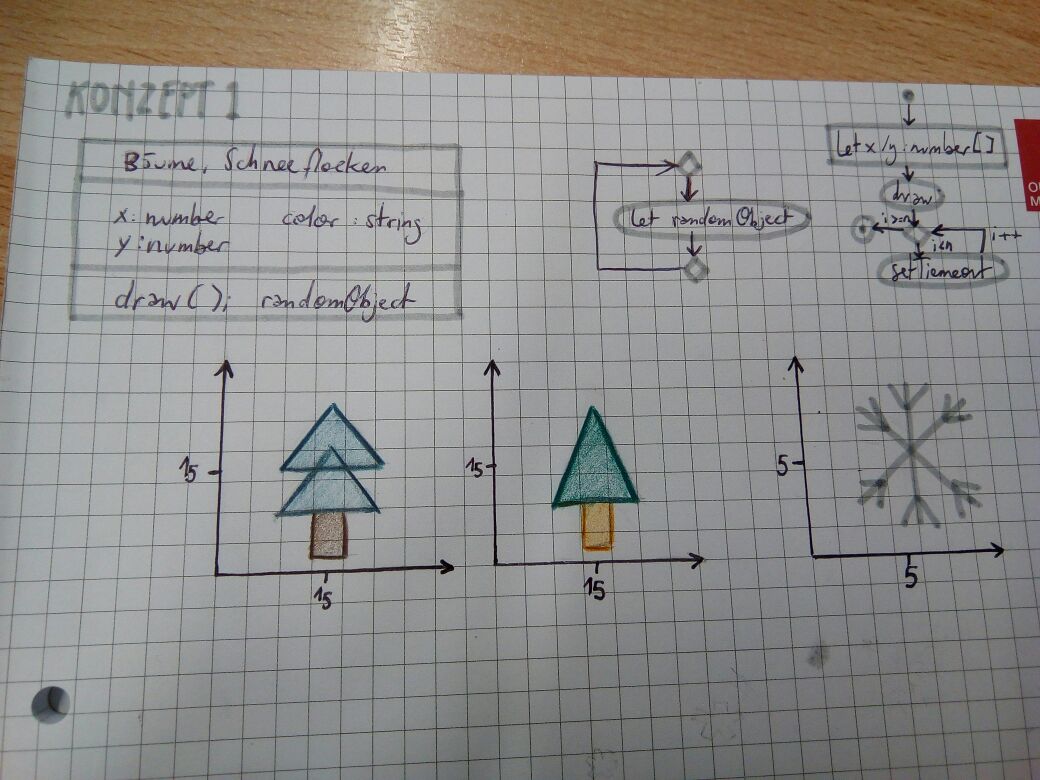 KONZEPT 1
Bäume, Schneeflocken
x: number color: string
y: number
draw(); randomObject
let randomObject
let x/y: number[]
draw
i>=n
i<n
i++
setTiemeort
15
15
15
15
5
5